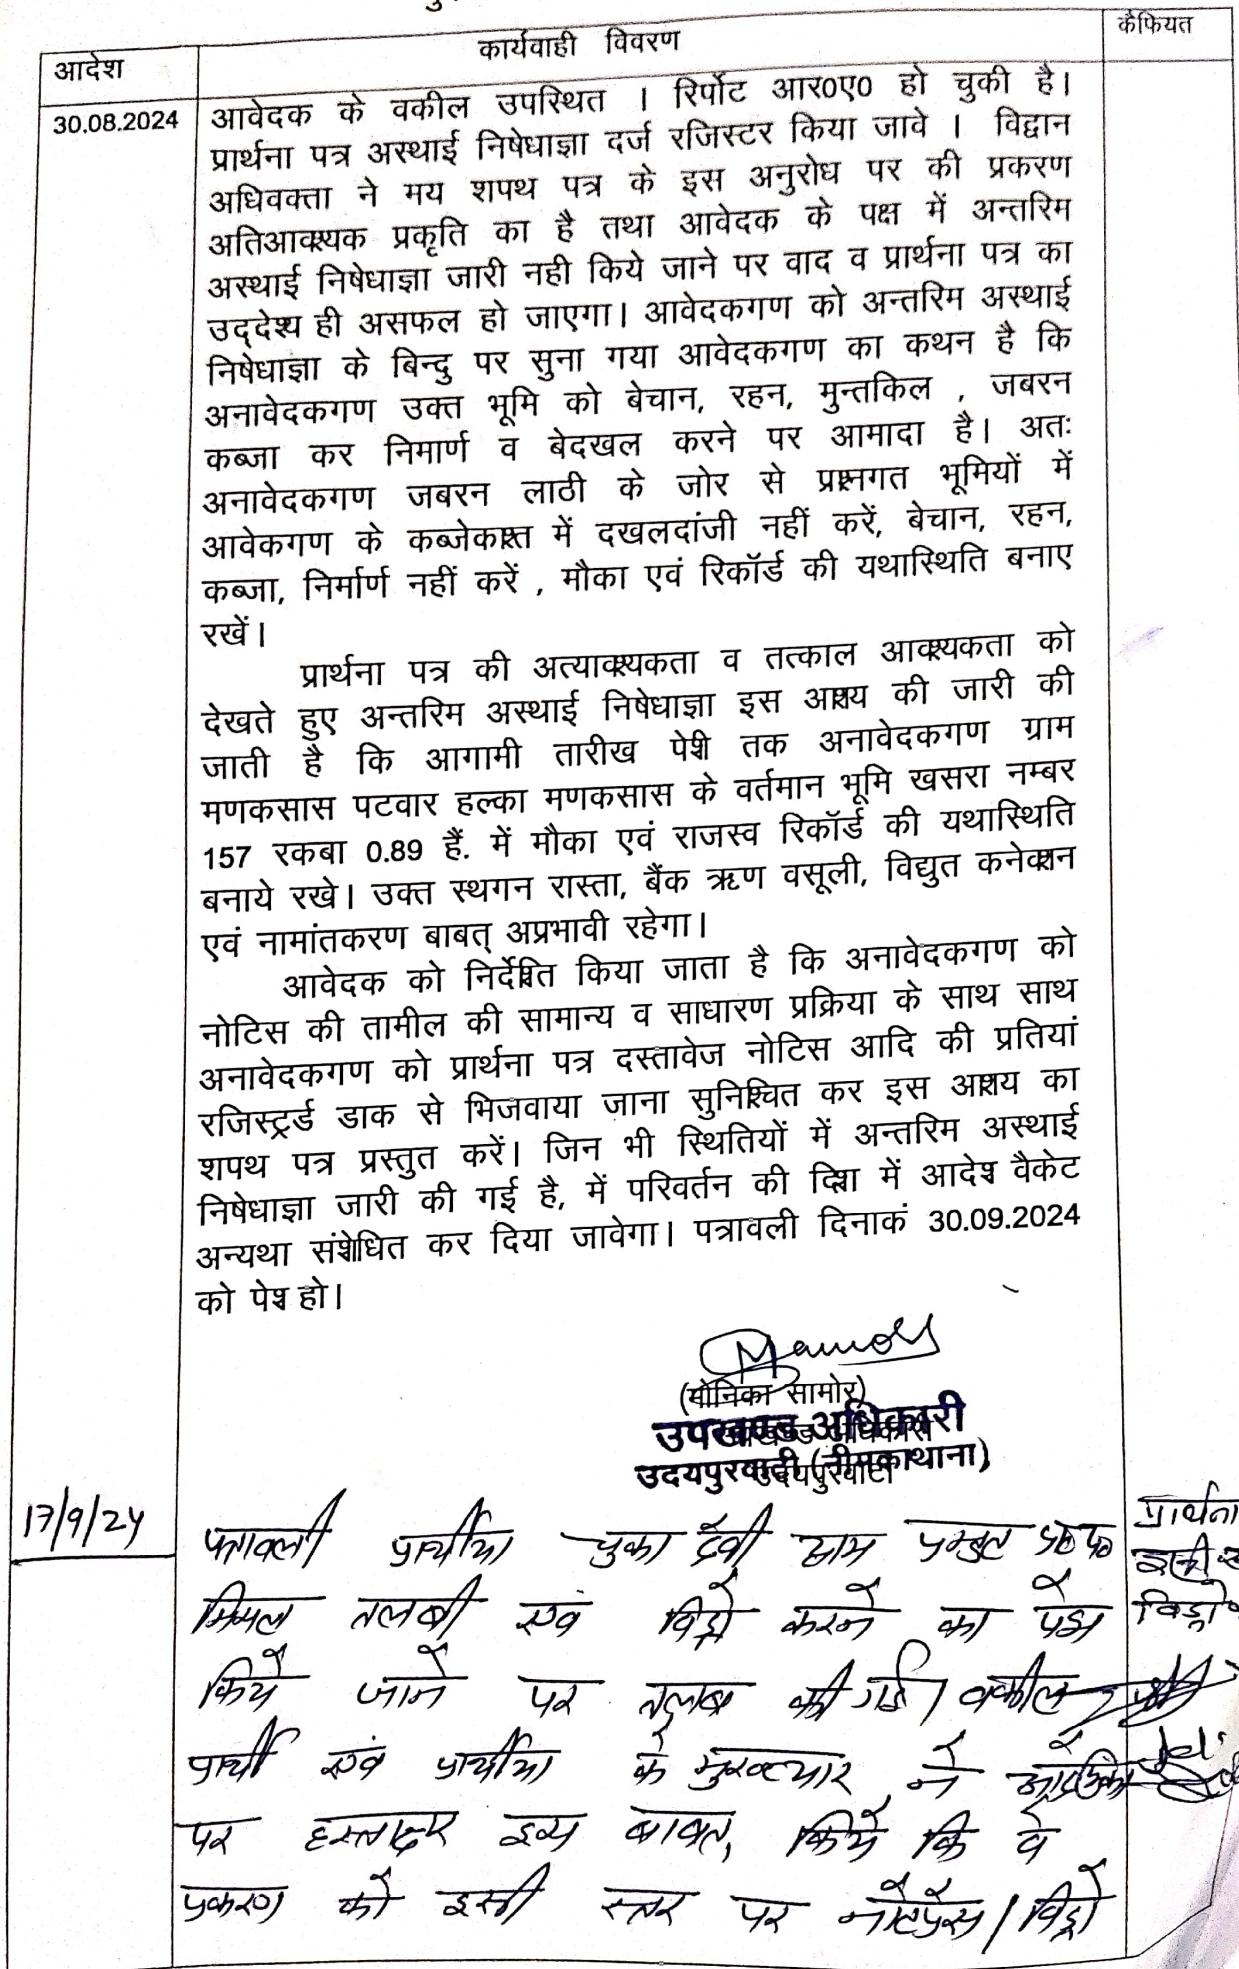 आदेश
कार्यवाही विवरण
कैफियत
30.08.2024
आवेदक के वकील उपस्थित । रिर्पोट आर0ए0 हो चुकी है।
प्रार्थना पत्र अस्थाई निषेधाज्ञा दर्ज रजिस्टर किया जावे । विद्वान
अधिवक्ता ने मय शपथ पत्र के इस अनुरोध पर की प्रकरण
अतिआवश्यक प्रकृति का है तथा आवेदक के पक्ष में अन्तरिम
अस्थाई निषेधाज्ञा जारी नही किये जाने पर वाद व प्रार्थना पत्र का
उद्देश्य ही असफल हो जाएगा। आवेदकगण को अन्तरिम अस्थाई
निषेधाज्ञा के बिन्दु पर सुना गया आवेदकगण का कथन है कि
अनावेदकगण उक्त भूमि को बेचान, रहन, मुन्तकिल , जबरन
कब्जा कर निमार्ण व बेदखल करने पर आमादा है। अतः
अनावेदकगण जबरन लाठी के जोर से प्रश्नगत भूमियों में
आवेकगण के कब्जेकाश्त में दखलदांजी नहीं करें, बेचान, रहन,
कब्जा, निर्मार्ण नहीं करें , मौका एवं रिकॉर्ड की यथास्थिति बनाए
रखें।
प्रार्थना पत्र की अत्यावश्यकता व तत्काल आवश्यकता को
देखते हुए अन्तरिम अस्थाई निषेधाज्ञा इस आशय की जारी की
जाती है कि आगामी तारीख पेशी तक अनावेदकगण ग्राम
मणकसास पटवार हल्का मणकसास के वर्तमान भूमि खसरा नम्बर
157 रकबा 0.89 हैं. में मौका एवं राजस्व रिकॉर्ड की यथास्थिति
बनाये रखे। उक्त स्थगन रास्ता, बैंक ऋण वसूली, विद्युत कनेक्शन
एवं नामांतकरण बाबत् अप्रभावी रहेगा।
आवेदक को निर्देशित किया जाता है कि अनावेदकगण को
नोटिस की तामील की सामान्य व साधारण प्रक्रिया के साथ साथ
अनावेदकगण को प्रार्थना पत्र दस्तावेज नोटिस आदि की प्रतियां
रजिस्ट्रर्ड डाक से भिजवाया जाना सुनिश्चित कर इस आशय का
शपथ पत्र प्रस्तुत करें। जिन भी स्थितियों में अन्तरिम अस्थाई
निषेधाज्ञा जारी की गई है, में परिवर्तन की दिशा में आदेश वैकेट
अन्यथा संशोधित कर दिया जावेगा। पत्रावली दिनाकं 30.09.2024
को पेश हो।
(मोनिका सामोर)
उपखण्ड अधिकारी
उदयपुरवाटी (नीमकाथाना)
17/9/24
पत्रावली प्रार्थीया चुका देवी द्वारा प्रस्तुत
प्रार्थना
मिसल तलबी एवं विड्रो करने का पेश
विड्रो
किये जाने पर तलब की गई। वकील
प्रार्थी एवं प्रार्थीया के मुख्त्यार ने
पर हस्ताक्षर इस बाबत, किये कि वे
प्रकरण को इसी स्तर पर नोटप्रेस/विड्रो